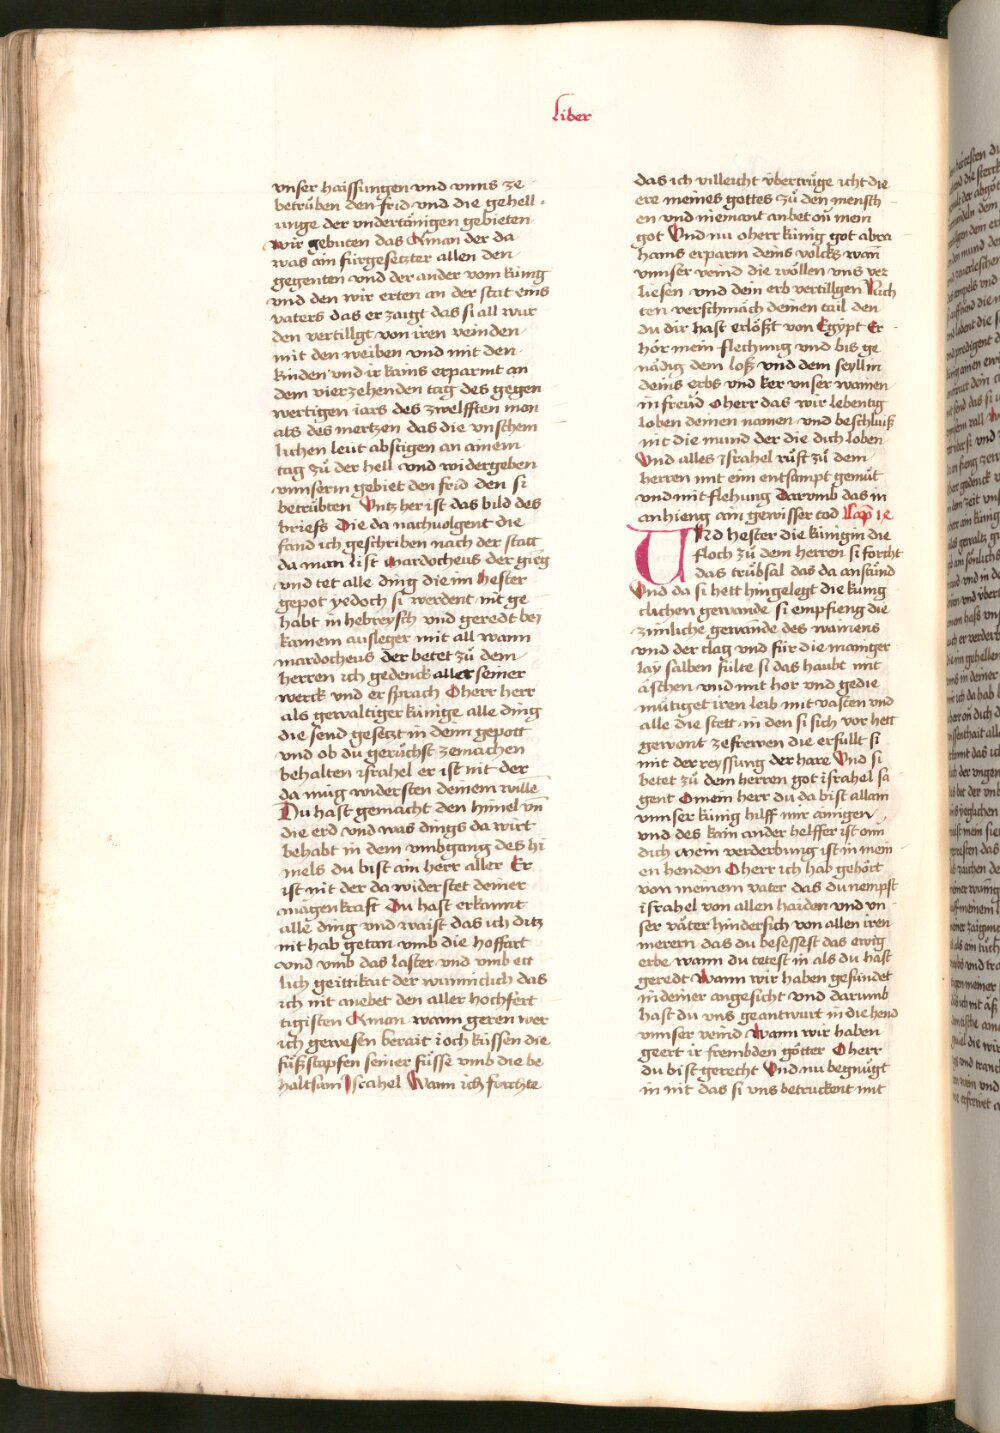 liber
vnser haissungen vnd vnns ze
betrüben den frid vnd die gehell
unge der vndertänigen gebieten
wir gebuten das Aman der da
was ain fürgesetzter allen den
gegenten vnd der ander vom künig
vnd den wir erten an der stat eins
vaters das er zaigt das si all wur
den vertillgt von iren veinden
mit den weiben vnd mit den
kinden vnd ir kains erparmt an
dem vierzehenden tag des gegen
wertigen iars des zwelfften mon
ats des mertzen das die vnschem
lichen leüt abstigen an ainem
tag zü der hell vnd widergeben
vnnserm gebiet den frid den si
betrübten Vntz her ist das bild des
briefs Die da nachuolgent die
fand ich geschriben nach der statt
da man list Mardocheus der gieng
vnd tet alle ding die im Hester
gepot yedoch si werdent nit ge
habt in hebreysch vnd geredt bei
kainem ausleger mit all wann
mardocheus der betet zü dem
herren ich gedenck aller seiner
werck vnd er sprach O herr herr
als gewaltiger künige alle ding
die send gesetzt in deim gepott
vnd ob du geruchst ze machen
behalten israhel er ist nit der
da müg widersten deinem wille
Du hast gemacht den himel vn
die erd vnd was dings da wirt
behabt in dem vmbgang des hi
mels du bist ain herr aller Er
ist nit der da widerstet deiner
mägenkraft Du hast erkannt
alle ding vnd waist das ich ditz
nit hab getan vmb die hoffart
vnd vmb das laster vnd vmb ett
lich geittikait der wunnclich das
ich nit anebet den aller hochfert
tigisten Aman wann geren wer
ich gewesen berait ioch küssen die
füßstapfen seiner füsse vmb die be
haltsam Israhel Wann ich forchte
das ich villeicht übertrüge icht die
ere meines gottes zü den mensch
en vnd niemant anbet on mein
got Vnd nu o herr künig got abra
hams erparm deins volcks wan
vnnser veind die wöllen vns ver
liesen vnd dein erb vertillgen Nich
ten verschmäch deinen tail den
du dir hast erlößt von Egypt Er
hör mein flechung vnd bis ge
nädig dem loß vnd dem seyllin
deins erbs vnd ker vnser wainen
in freüd o herr das wir lebentig
loben deinen namen vnd beschluiß
nit die mund der die dich loben
Vnd alles israhel rüft zü dem
herren mit ein entsampt gemüt
vnd mit flehung Darumb das in
anhieng ain gewisser tod Cap ix
Und hester die künigin die
floch zü dem herren si forcht
das trübsal das da anstünd
Vnd da si hett hingelegt die künig
clichen gewande si empfieng die
zimliche gewande des wainens
vnd der clag vnd für die maniger
lay salben fülte si das haubt mit
äschen vnd mit hor vnd gedie
mütiget iren leib mit vasten vnd
alle die stett in den si sich vor hett
gewont ze frewen die erfullt si
mit der reyssung der hare Vnd si
betet zü dem herren got israhel sa
gent O mein herr du da bist allain
vnnser künig hilff mir ainigen
vnd des kain ander helffer ist on
dich Mein verderbung ist in mein
en henden O herr ich hab gehört
von meinem vater das du nempst
israhel von allen haiden vnd vn
ser väter hindersich von allen iren
merern das du besessest das ewig
erbe wann du tetest in als du hast
geredt Wann wir haben gesündet
in deiner angesicht vnd darumb
hast du vns geantwurt in die hend
vnnser veind Wann wir haben
geert ir frembden götter O herr
du bist gerecht Vnd nu begnügt
in nit das si vns betruckent mit